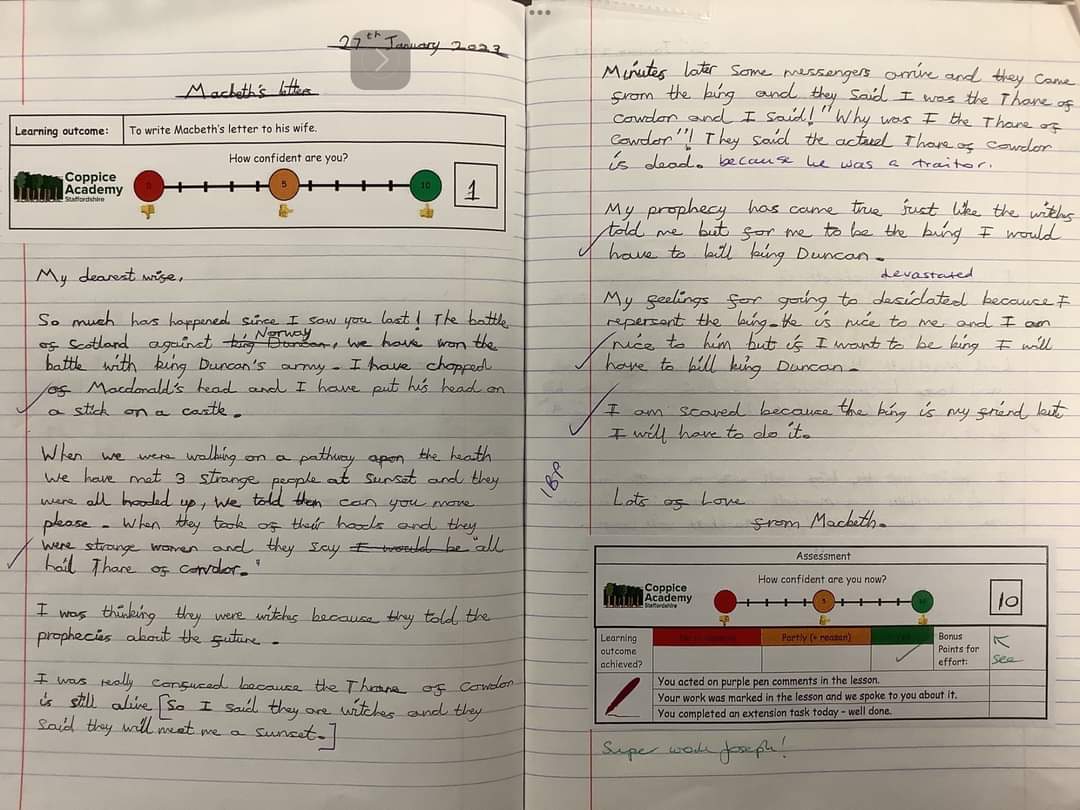 27th January 2023
Macbeth's letters
Learning outcome: To write Macbeth's letter to his wife.
How confident are you?
Coppice
Academy
Staffordshire
0 5 10
1
My dearest wife,
So much has happened since I saw you last! The battle
of Scotland against king Duncan, Norway, we have won the
battle with king Duncan's army. I have chopped
of Macdonald's head and I have put his head on
a stick on a castle.
When we were walking on a pathway apon the heath
we have met 3 strange people at sunset and they
were all hooded up, we told then can you move
please. When they took of their hoods and they
were strange women and they say I would be "all
hail Thane of corvdor."
I was thinking they were witches because they told the
prophecies about the future.
I was really confuced because the Thrane of Cowdon
is still alive [So I said they are witches and they
said they will meet me a sunset.]
Minutes later some messengers arrive and they came
from the king and they said I was the Thane of
cowdon and I said! "Why was I the Thane of
cowdor"! They said the acteul Thane of cowdor
is dead. because he was a traitor.
My prophecy has came true just like the witches
told me but for me to be the king I would
have to kill king Duncan.
devastated
My feelings for going to desidated because I
repersent the king. He is nice to me and I am
nice to him but if I want to be king I will
have to kill king Duncan.
I am scared because the king is my friend but
I will have to do it.
1BP
Lots of Love
from Macbeth.
Assessment
How confident are you now?
Coppice
Academy
Staffordshire
5 10
10
Learning
outcome
achieved?
Partly (+ reason)
Bonus
Points for
effort:
see
You acted on purple pen comments in the lesson.
Your work was marked in the lesson and we spoke to you about it.
You completed an extension task today – well done.
Super work Joseph!